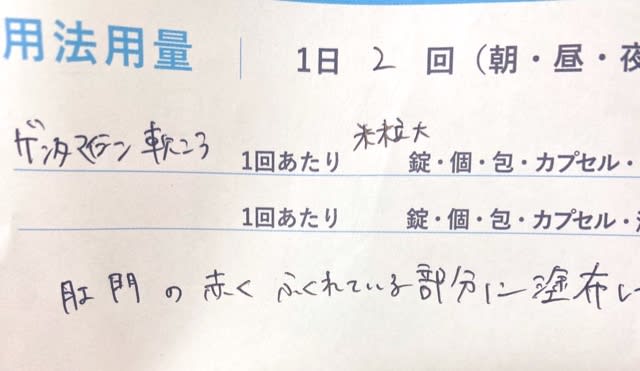 用法用量 1日 2 回（朝・昼・夜
ゲンタマイシン軟こう 1回あたり 米粒大 錠・個・包・カプセル・
1回あたり 錠・個・包・カプセル・
肛門の赤くふくれている部分に塗布し